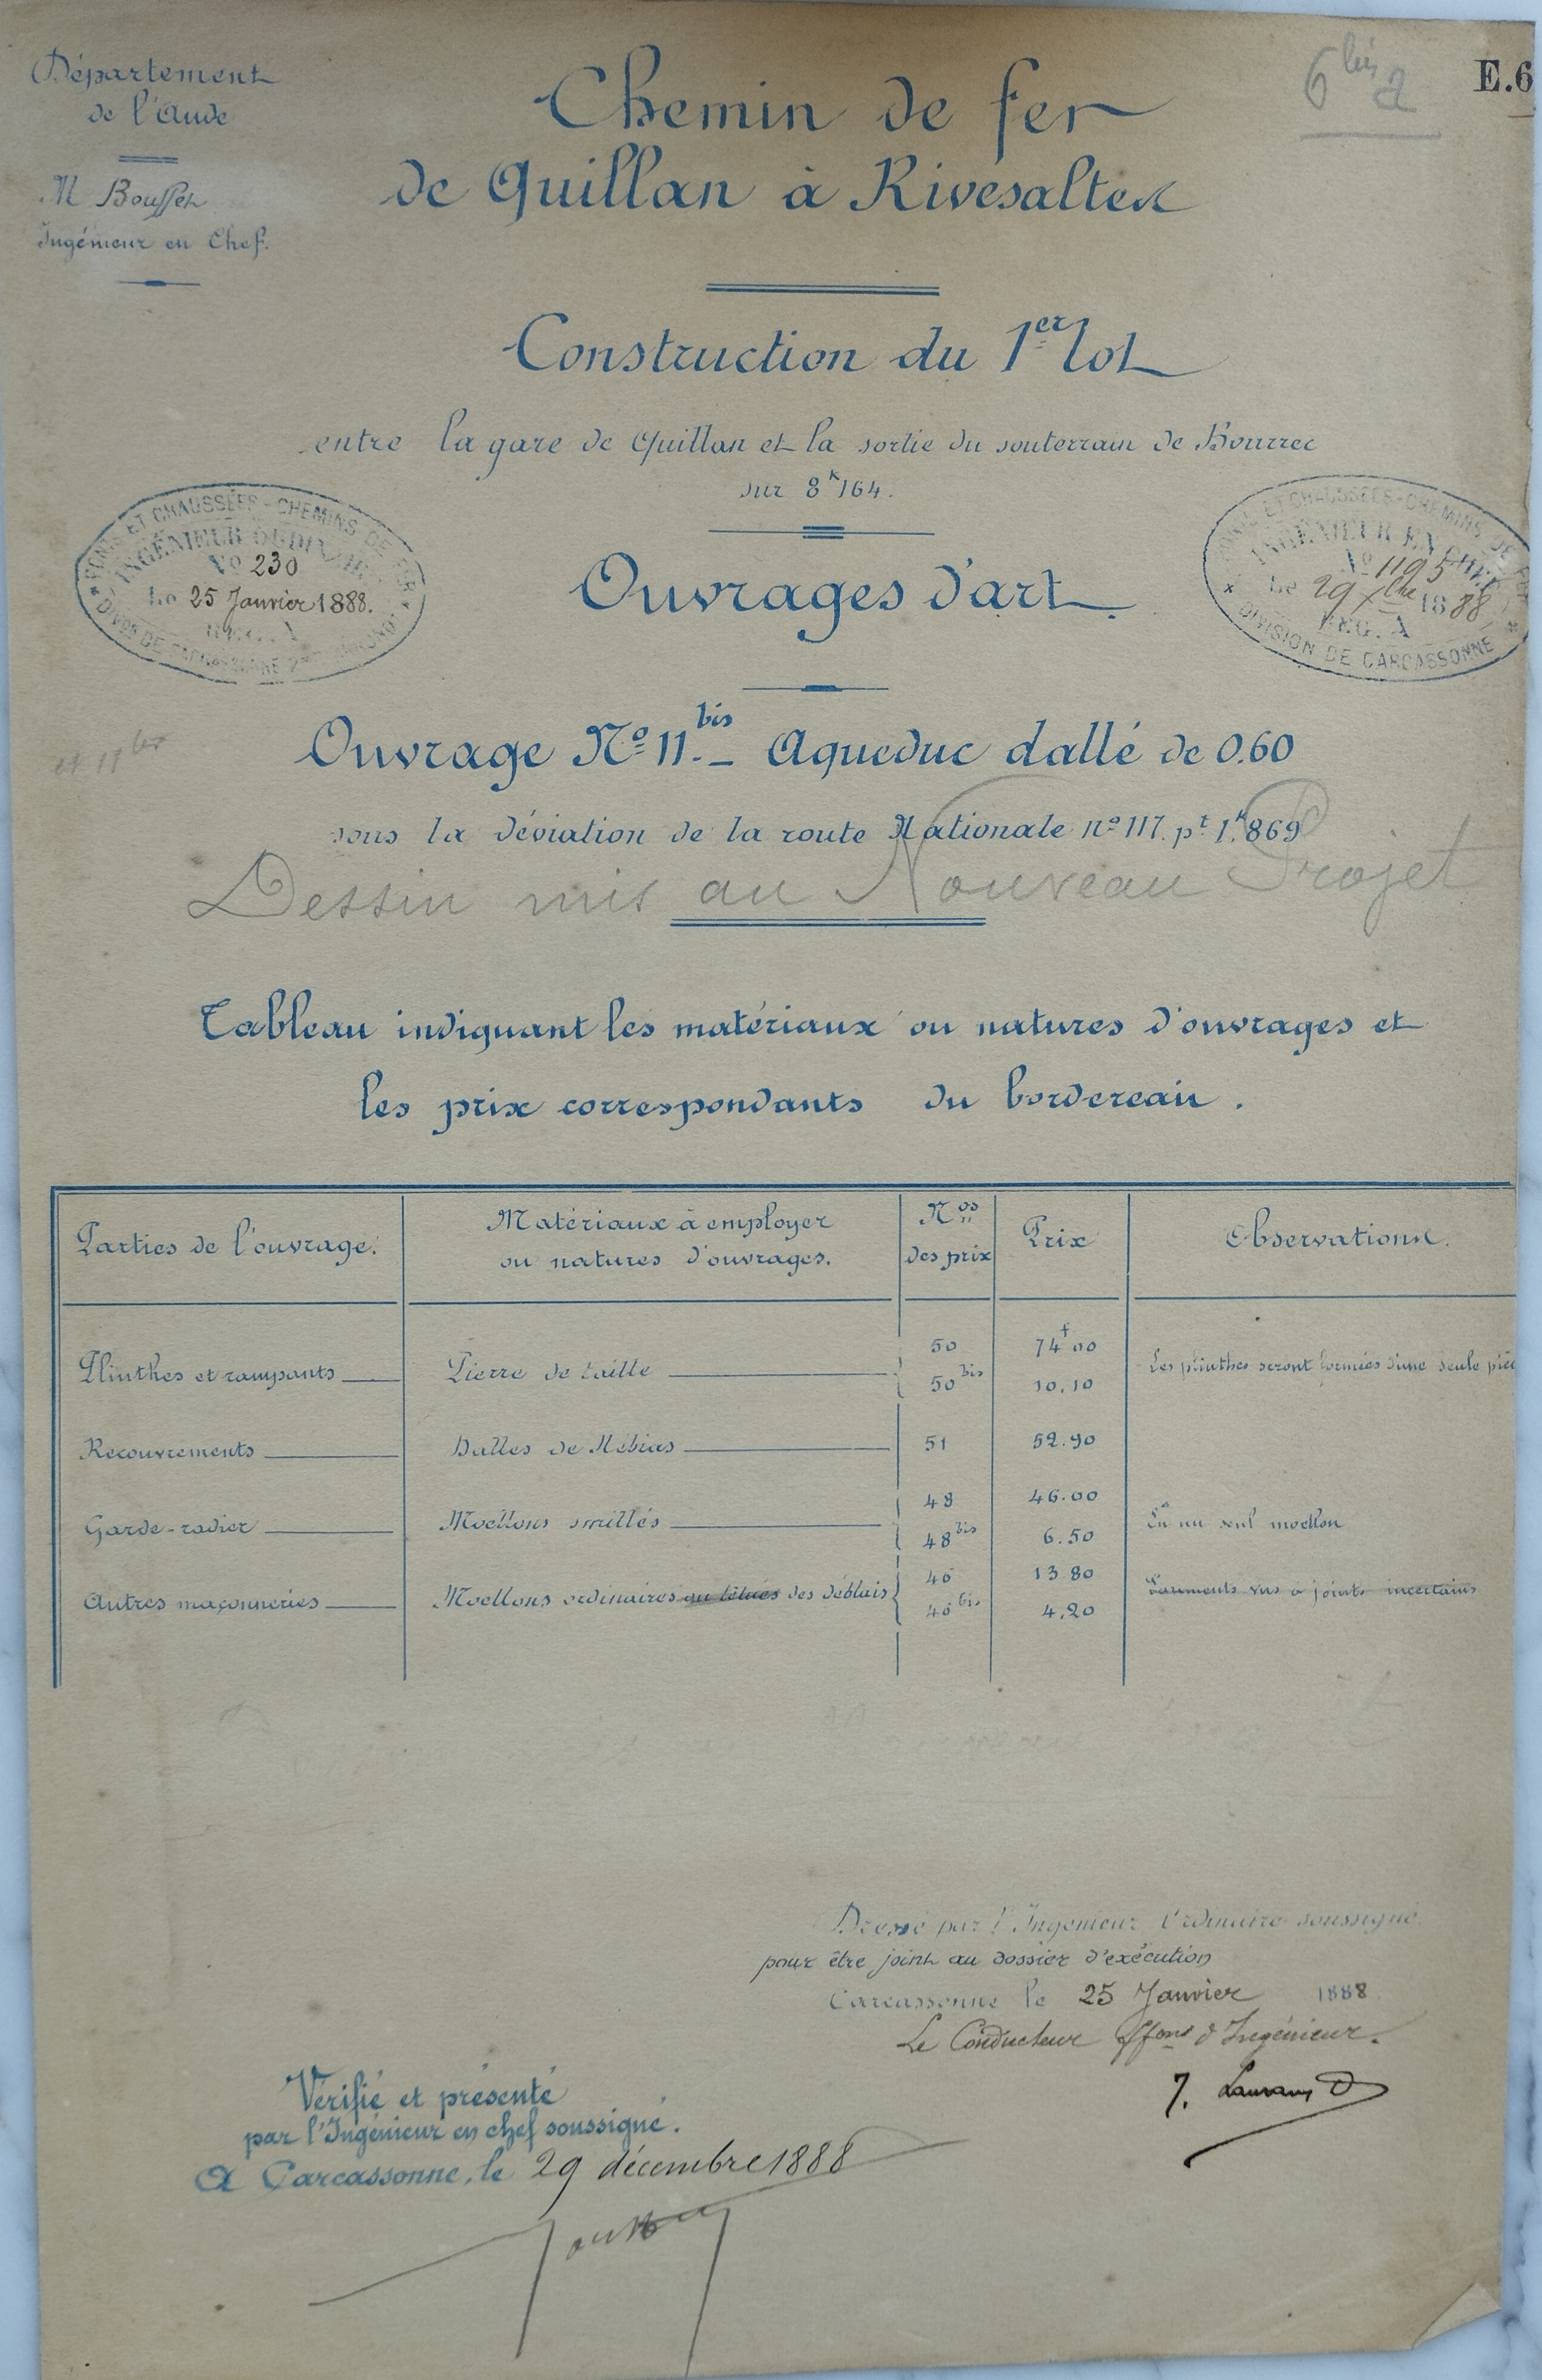 Département
de l'Aude
M Bouffet
Ingénieur en Chef.
6 bis a
E.6
Chemin de fer
de Quillan à Rivesaltes
Construction du 1er lot
entre la gare de Quillan et la sortie du souterrain de Bourrec
sur 8k164.
PONTS ET CHAUSSÉES - CHEMINS DE FER
INGÉNIEUR ORDINAIRE
No 230
Le 25 Janvier 1888.
PONTS ET CHAUSSÉES - CHEMINS DE FER
INGÉNIEUR EN CHEF
No 1195
Le 29 Xbre 1888
REG. A
DIVISION DE CARCASSONNE
Ouvrages d'art.
Ouvrage No 11 bis. - Aqueduc dallé de 0.60
et 11 ter
sous la déviation de la route Nationale no 117. pt 1k.869
Dessin mis au Nouveau Projet
Tableau indiquant les matériaux ou natures d'ouvrages et
les prix correspondants du bordereau.
Parties de l'ouvrage. Matériaux à employer ou natures d'ouvrages. Nos des prix Prix Observations.
Plinthes et rampants Pierre de taille 50 74f00 Les plinthes seront formées d'une seule
50 bis 10.10
Recouvrements Dalles de Nébias 51 52.90
Garde-radier Moellons smillés 48 46.00 En un seul moellon
48 bis 6.50
Autres maçonneries Moellons ordinaires des déblais 46 13 80 Parements vus à joints incertains
46 bis 4,20
Dressé par l'Ingénieur Ordinaire soussigné
pour être joint au dossier d'exécution
Carcassonne le 25 Janvier 1888
Le Conducteur ffons d'Ingénieur.
Vérifié et présenté
par l'Ingénieur en chef soussigné.
A Carcassonne, le 29 décembre 1888